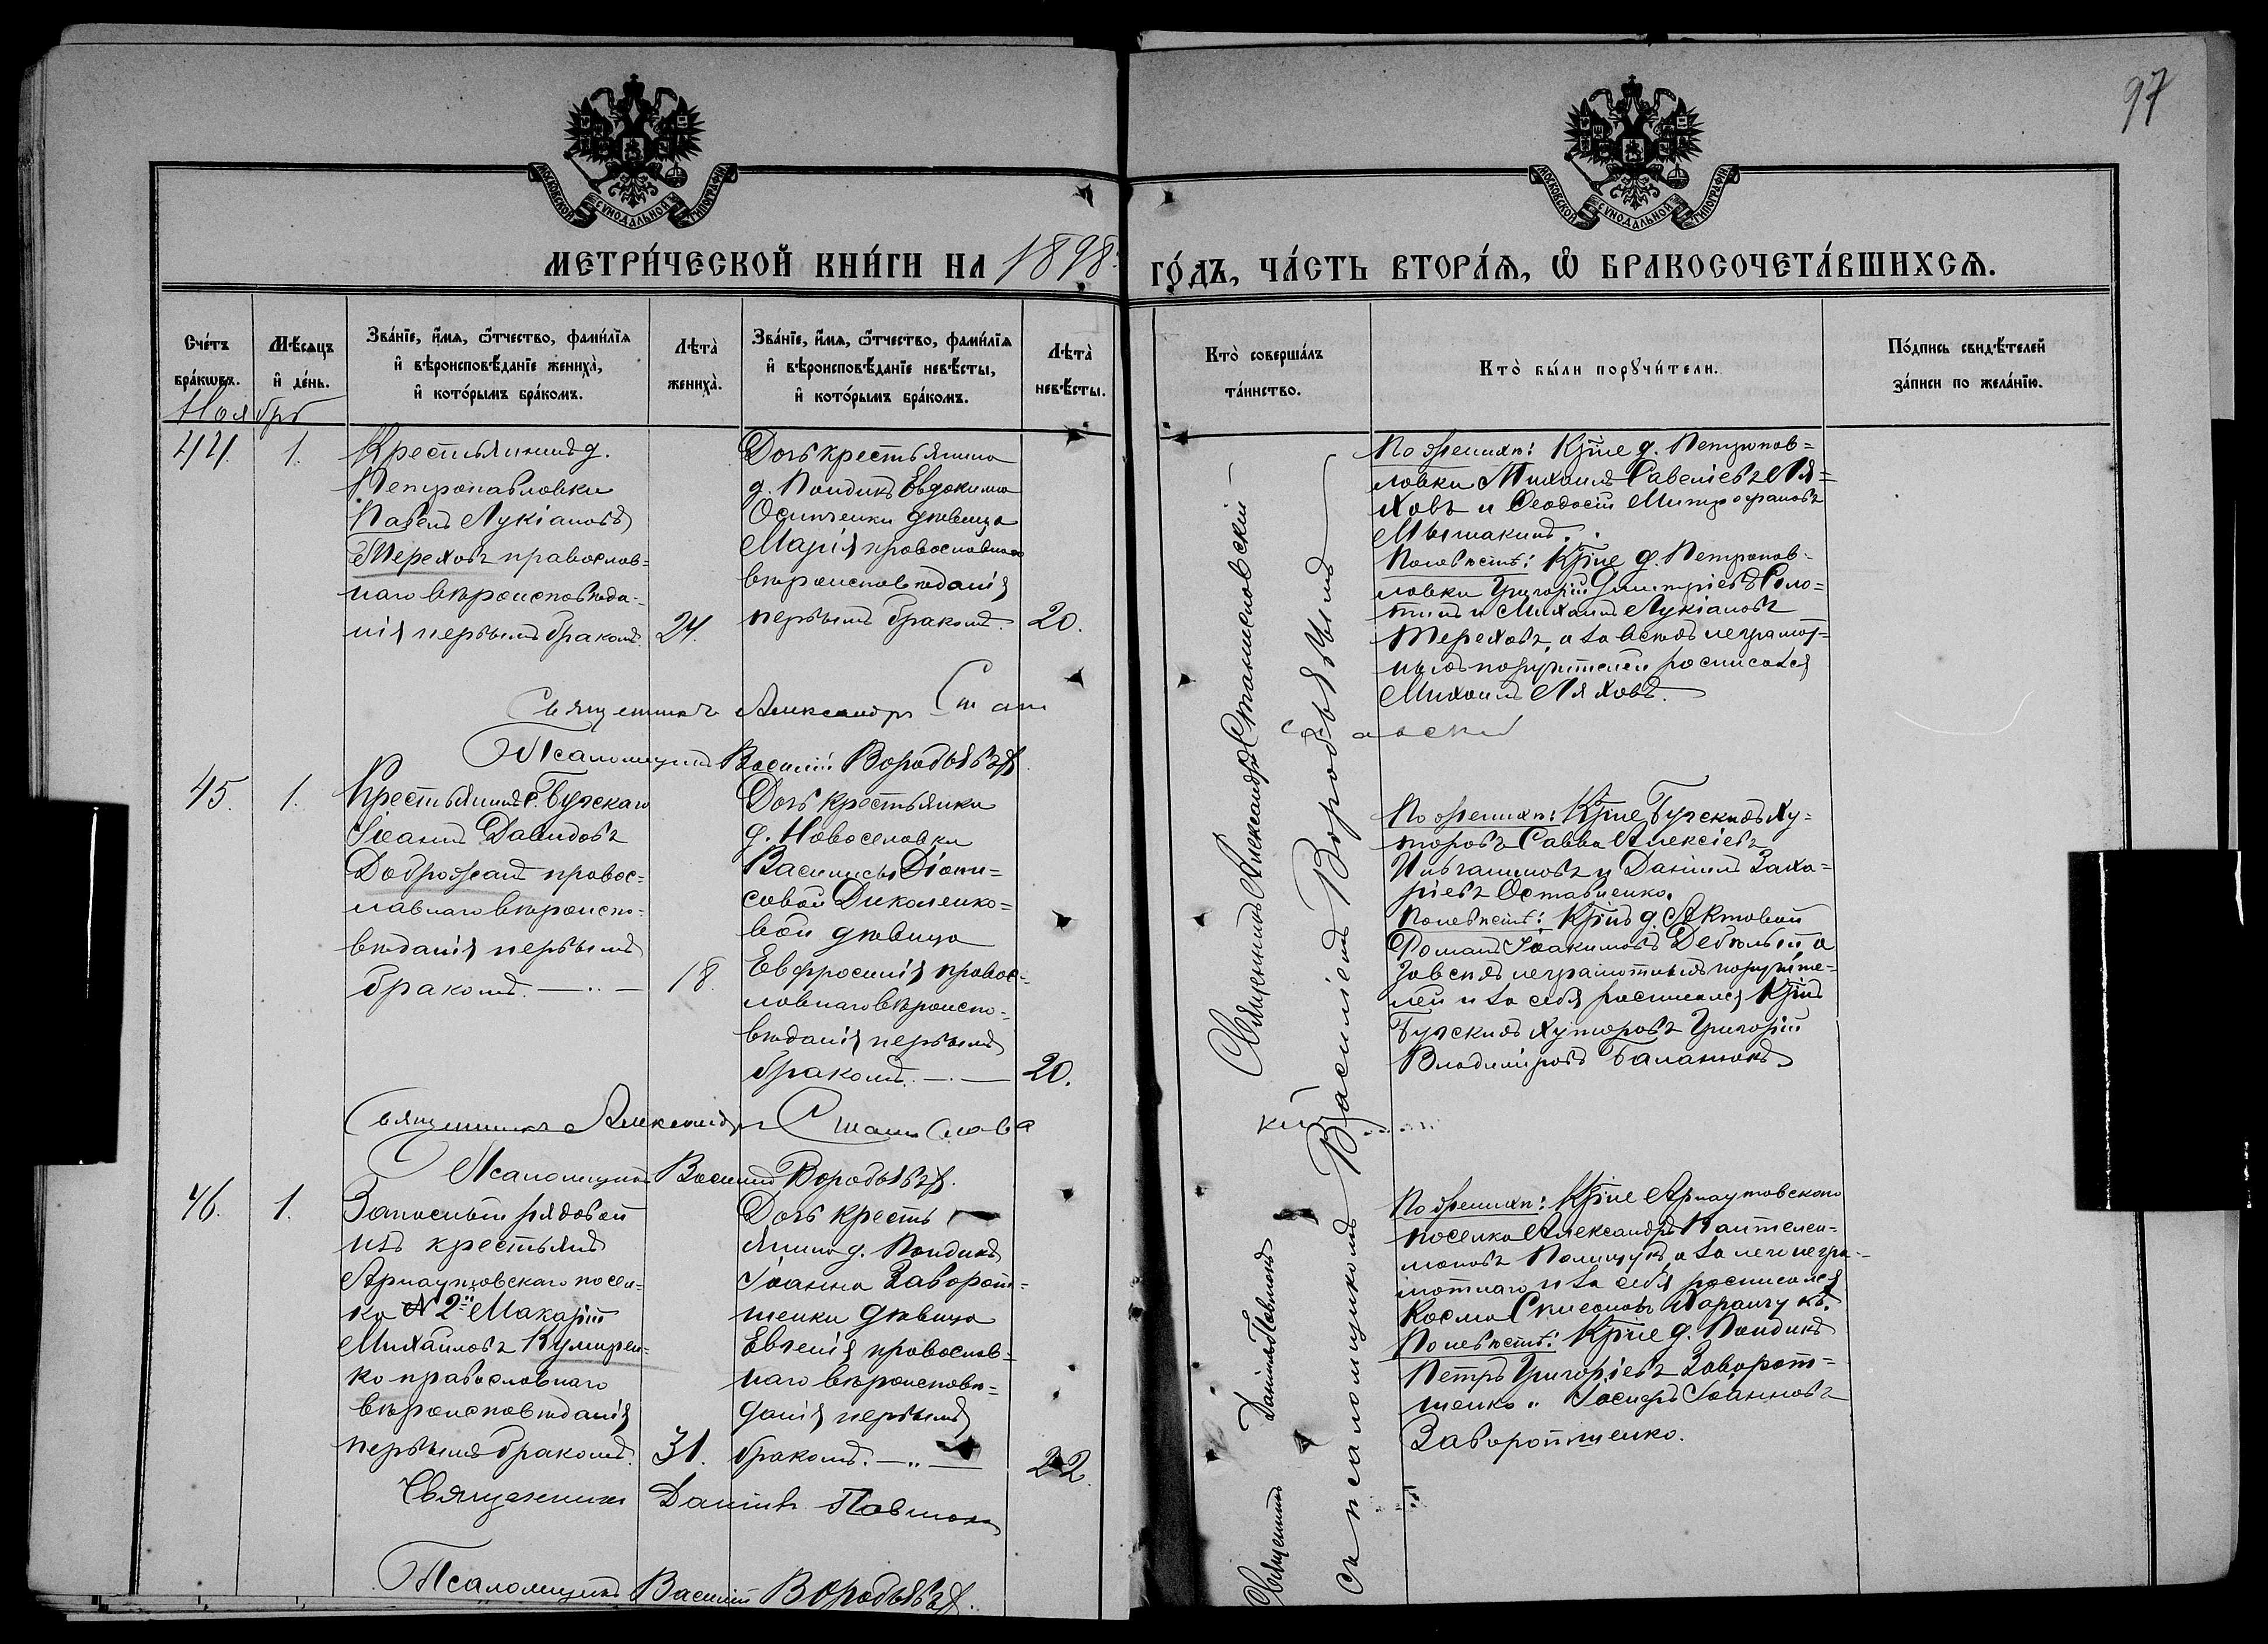 97
МОСКОВСКОЙ СУНОДАЛЬНОЙ ТИПОГРАФІИ
МОСКОВСКОЙ СУНОДАЛЬНОЙ ТИПОГРАФІИ
МЕТРИ́ЧЕСКОЙ КНИ́ГИ НА 1898
ГО́ДЪ, ЧА́СТЬ ВТОРА́Я, Ѡ БРАКОСОЧЕТА́ВШИХСЯ.
Сче́тъ
бра́кѡвъ.
Мѣ́сяцъ
и де́нь.
Зва́нїе, и́мя, ѻ́тчество, фами́лїя
и вѣроисповѣ́данїе жениха̀,
и кото́рымъ бра́комъ.
Лѣта̀
жениха̀.
Зва́нїе, и́мя, ѻ́тчество, фами́лїя
и вѣроисповѣ́данїе невѣ́сты,
и кото́рымъ бра́комъ.
Лѣта̀
невѣ́сты.
Кто̀ соверша́лъ
та́инство.
Кто̀ бы́ли порꙋчи́тели.
По́дпись свидѣ́телей
за́писи по жела́нїю.
Ноябрь
44.
1.
Крестьянинъ д.
Петропавловки
Павелъ Лукіановъ
Тереховъ православ=
наго вѣроисповѣда-
нія первымъ бракомъ.
24.
Дочь крестьянина
д. Пондикъ Евдокима
Осипченки дѣвица
Марія православнаго
вѣроисповѣданія
первымъ бракомъ.
20.
По женихѣ: Кр̃не д. Петропав=
ловки Михаилъ Савеліевъ Ля=
ховъ и Ѳеодосій Митрофановъ
Мышакинъ.
По невѣстѣ: Кр̃не д. Петропав-
ловки Григорій Димитріевъ Соло=
тинъ и Михаилъ Лукіановъ
Тереховъ, а за всѣхъ неграмот=
ныхъ поручителей росписался
Михаилъ Ляховъ.
Священникъ Александръ Стан
Псаломщикъ Василій Воробьевъ
45.
1.
Крестьянинъ с. Бугскаго
Іоаннъ Давидовъ
Доброжанъ правос=
лавнаго вѣроиспо=
вѣданія первымъ
бракомъ.
18.
Дочь крестьянки
д. Новоселовки
Василисы Діони=
совой Диколенко=
вой дѣвица
Евфросинія правос=
лавнаго вѣроиспо=
вѣданія первымъ
бракомъ.
20.
По женихѣ: Кр̃не Бугскихъ Ху=
торовъ Савва Алексіевъ
и Даніилъ Заха=
ріевъ Оставненко.
По невѣстѣ: Кр̃нъ д. Актовой
Романъ Іоакимовъ а
за всѣхъ неграмотныхъ поручите=
лей и за себя росписался Кр̃нъ
Бугскихъ Хуторовъ Григорій
Владиміровъ Баланюкъ
Священникъ Александръ Станиславс
кій
Псаломщикъ Василій Воробьевъ
46.
1.
Запасный рядовой
изъ крестьянъ
Арнаутовскаго посел-
ка № 2й Макарій
Михаиловъ Кушнрен=
ко православнаго
вѣроисповѣданія
первымъ бракомъ.
31.
Дочь кресть
янина д. Пондикъ
Іоанна Заворот=
ченки дѣвица
Евгенія православ=
наго вѣроисповѣ=
данія первымъ
бракомъ.
22.
По женихѣ: Кр̃не Арнаутовскаго
поселка Александръ Пантелеи=
моновъ Полищукъ, а за него негра-
мотнаго и за себя росписался
Косма Симеоновъ
По невѣстѣ: Кр̃не д. Пондикъ
Петръ Григоріевъ Заворот=
ченко и Іосифъ Іоанновъ
Заворотченко.
Священникъ Даніилъ
Псаломщикъ Василій Воробьевъ
Священникъ Александръ Станиславскій
Священникъ Даніилъ
Съ псаломщикомъ Василіемъ Воробьевымъ